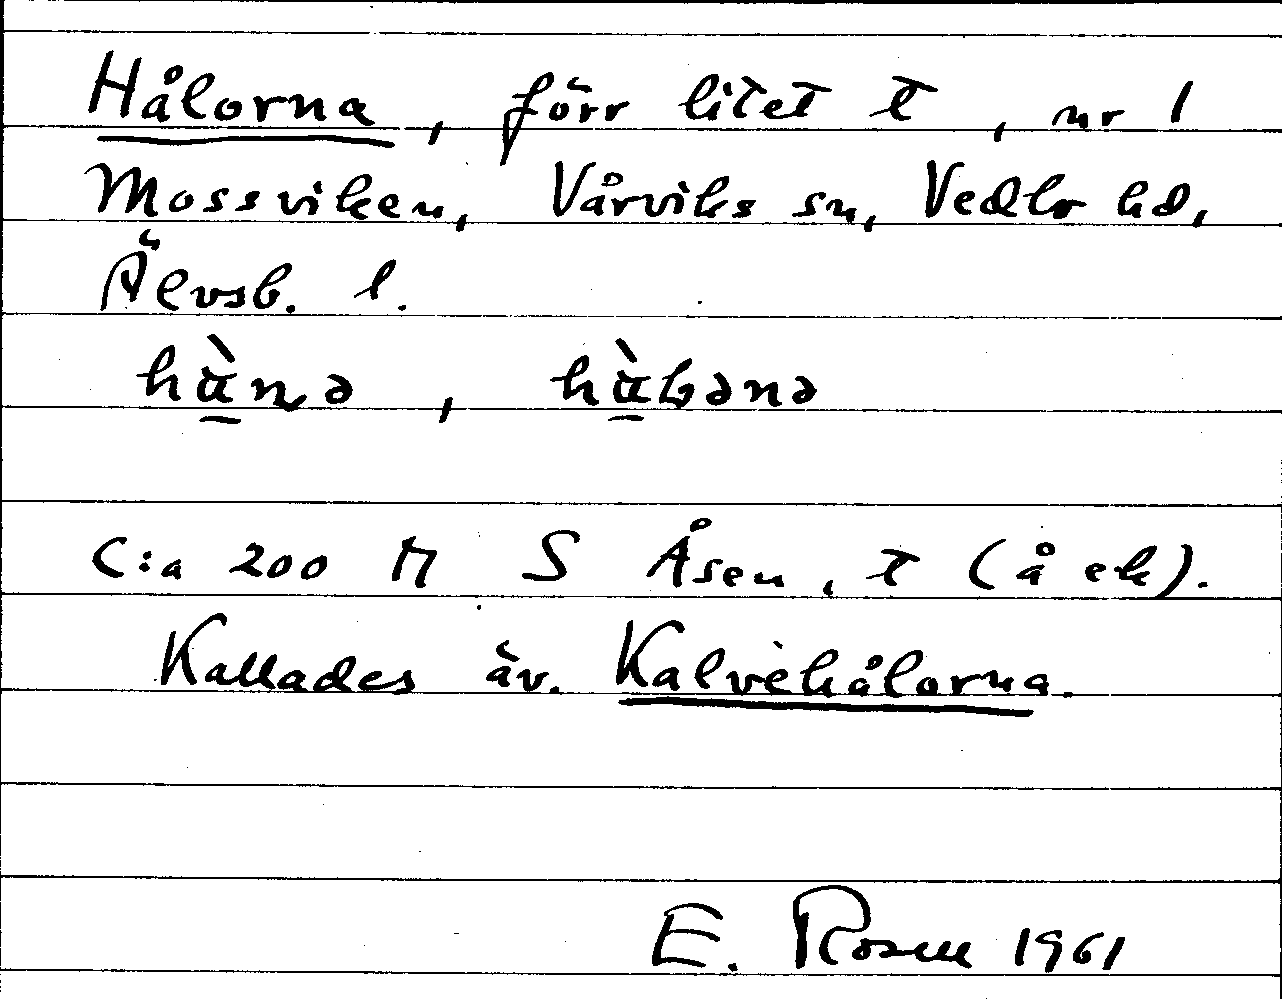 Hålorna, förr litet t, nr 1
Mossviken, Vårviks sn, Vedbo hd,
Älvsb. l.
hɑ̀nə, hɑ̀bənə
C:a 200 M S Åsen, t (å ek).
Kallades äv. Kalvehålorna.
E. Rosell 1961